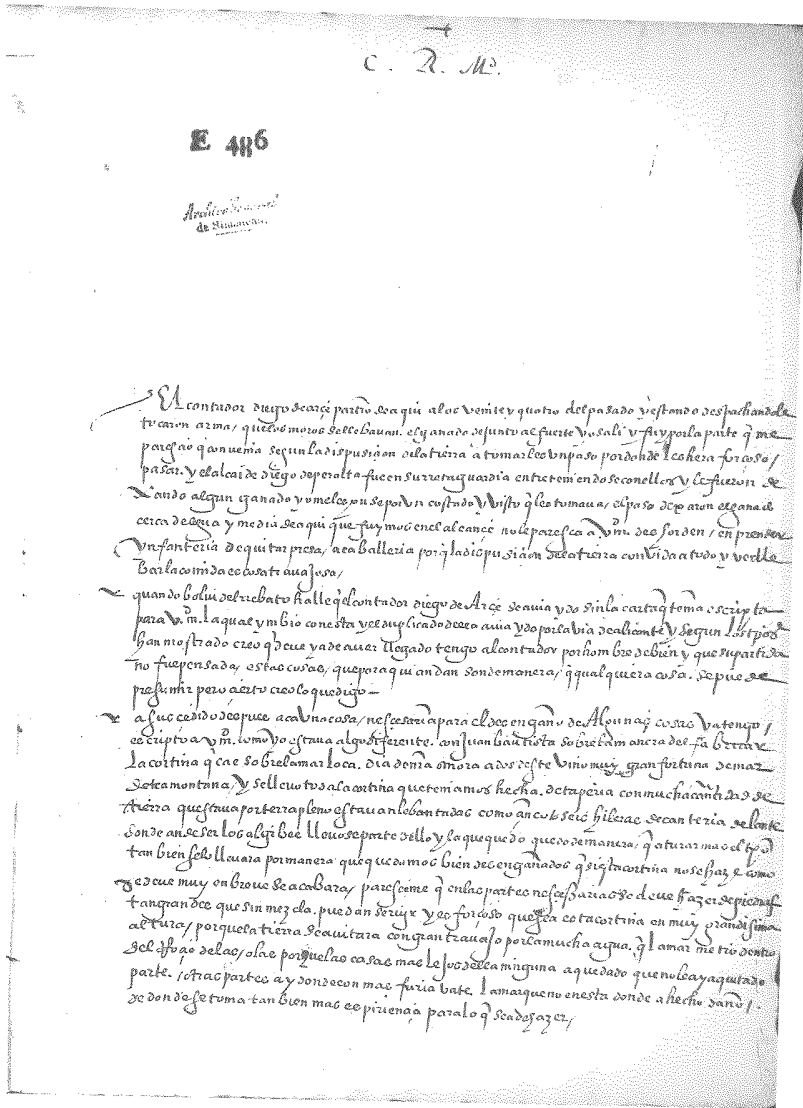 C. R. Md.
E 486
Archivo General
de Simancas
El contador diego de arçe partio de aqui a los veinte y quatro del pasado y estando despachandole
tocaron arma, que los moros se llebavan. el ganado de junto al fuerte yo sali y fuy por la parte q̃ me
paresçio q̃ convenia segun la dispusiçion de la tierra a tomarles un paso por donde les hera forçoso /
pasar. y el alcaide diego de peralta fue en su rretaguardia entreteniendose con ellos y le fueron de
xando algun ganado yo me les puse por un costado y visto q̃ les tomava, el paso dexaron el ganado
cerca de legua y media de aqui que fuymos en el alcançe no le paresca a V. m. desorden, en prender
ynfanteria de quitar presa, a caballeria porq̃ la dispusiçion de la tierra convida a todo y verlle
bar la comida es cosa travajosa /
quando bolvi del rrebato halle q̃l contador diego de Arçe se avia ydo sin la carta q̃ tenia escripta
para V. m. la qual ymbio con esta y el duplicado della avia ydo por la via de alicante y segun los tpos
han mostrado creo q̃ deve ya de aver llegado tengo al contador por hombre de bien y que su partida
no fue pensada, estas cosas, que por aqui andan son de manera, q̃ qualquiera cosa. se puede
presumir pero çierto creo lo que digo —
a suçedido despues aca una cosa, nesçesaria para el desengaño de Algunas cosas ya tengo /
escripto a V. m. como yo estava algo diferente. con Juan bautista sobre la manera del fabricar
la cortina q̃ cae sobre la mar loca. dia de nra señora a dos deste vino muy gran fortuna de mar
de tramontana, y se llevo toda la cortina que teniamos hecha. de taperia con mucha cantidad de
tierra questava por terrapleno estavan lebantadas como çinco o seis hileras de canteria delante
donde an de ser los algibes llevose parte dello y la que quedo quedo de manera, q̃ a turar mas el tpo
tan bien se lo llevara por manera que quedamos bien desengañados q̃ si esta cortina no se haze como
se deve muy en breve se acabara, paresçeme q̃ en las partes nesçessarias se deve hazer de piedras
tan grandes que sin mezcla. puedan servir y es forçoso que sea esta cortina en muy grandisima
altura, porque la tierra se avitara con gran travajo por la mucha agua. q̃ la mar metio dentro
del las, olas porque las casas mas lejos della ninguna a quedado que no le aya quitado
parte. / otras partes ay donde con mas furia vate. la mar que no en esta donde a hecho daño /.
de donde se toma tan bien mas espiriençia para lo q̃ se a de hazer /